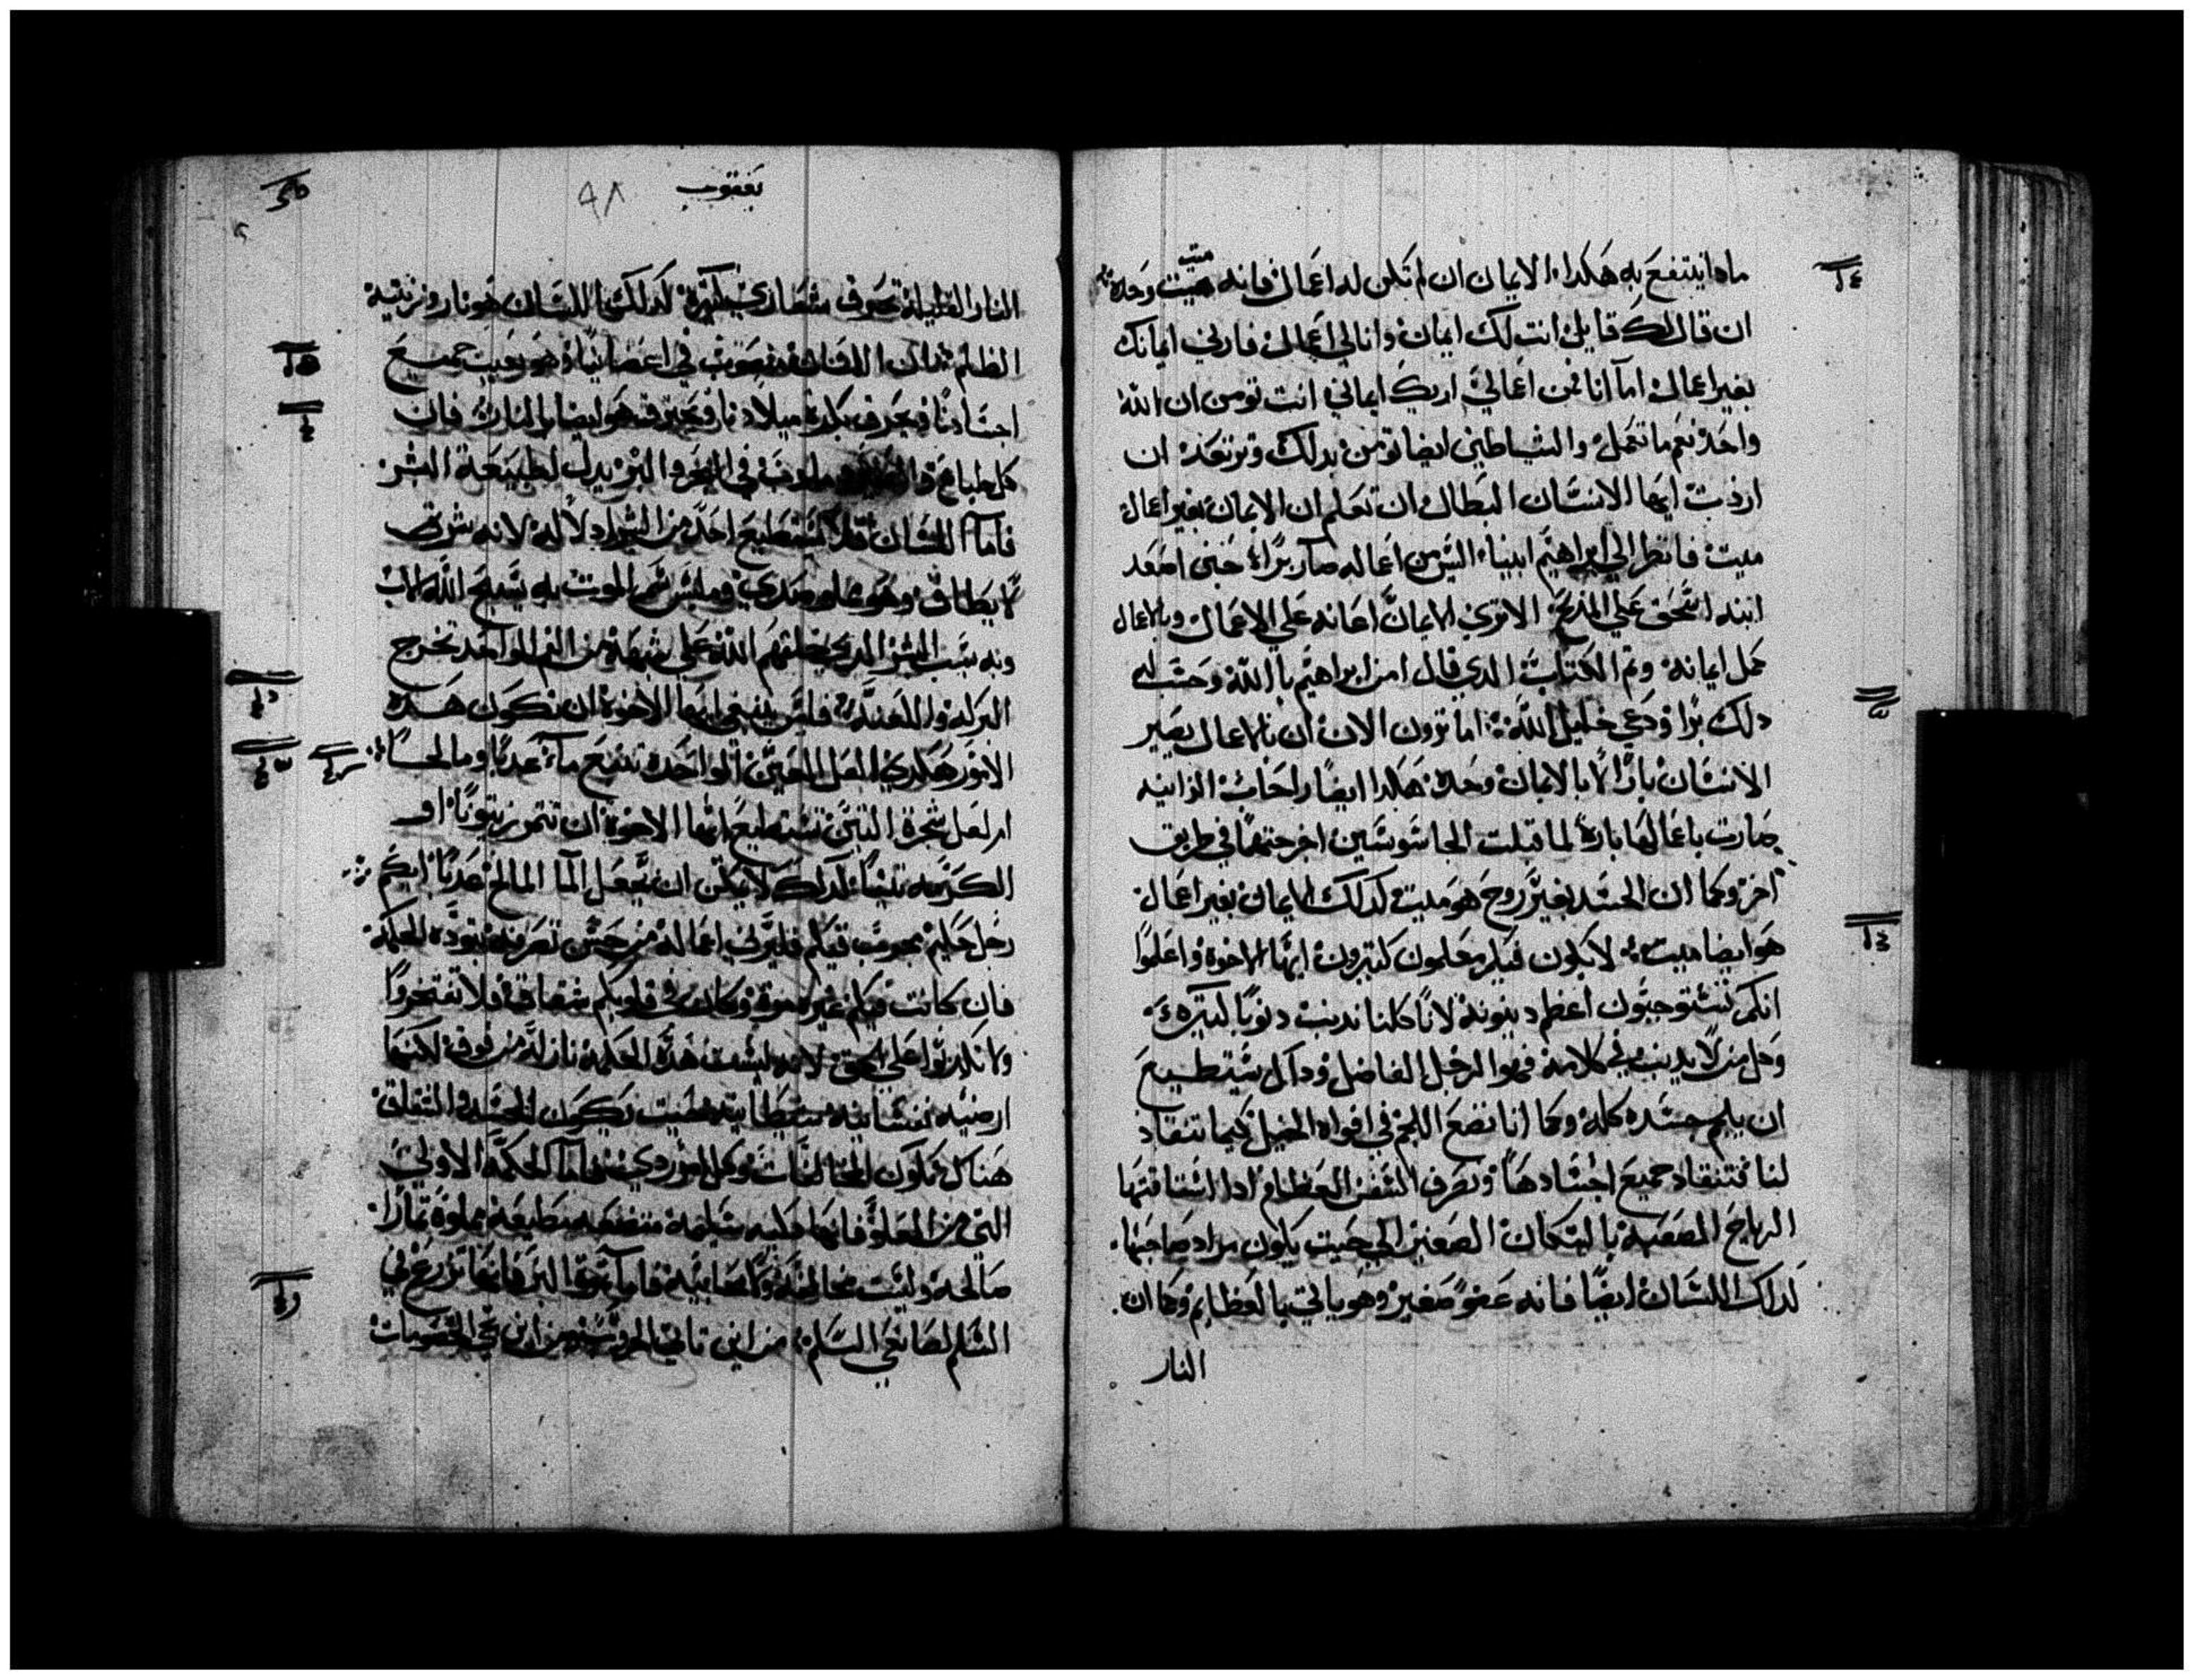 ماداينتفع به هكدا الايمان ان لم تكن له اعمال فانه ميت وحده
ان قال لك قايل انت لك ايمان وانا لي اعمال فارني ايمانك
بغير اعمال اما انا فمن اعمالي اريك ايماني انت تومن ان الله
واحد نعم ما تعمل والشياطين ايضا تومن بدلك وترتعد ان
اردت ايها الانسان البطال ان تعلم ان الايمان بغير اعمال
ميت فانظر الي ابراهيم ابينا اليس من اعماله صار برا حين اصعد
ابنه اسحق علي المدبح الا تري الايمان اعانه علي الاعمال وبالاعمال
كمل ايمانه وتم الكتاب الدي قال امن ابراهيم بالله وحسب له
دلك برا ودعي خليل الله اما ترون الان ان بالاعمال يصير
الانسان بارا لا بالايمان وحده هكدا ايضا راحاب الزانيه
صارت باعمالها باره لما قبلت الجاسوسين اخرجتهما في طريق
اخر وكما ان الجسد بغير روح هو ميت كدلك الايمان بغير اعمال
هو ايضا ميت لا يكون فيكم معلمون كتيرون ايها الاخوة واعلموا
انكم تستوجبون اعظم دينونة لانا كلنا ندنب دنوبا كتيرة
وكل من لا يدنب في كلامه فهو الرجل الفاضل وداك يستطيع
ان يلجم جسده كله وكما انا نضع اللجم في افواه الخيل كيما تنقاد
لنا فتنقاد جميع اجسادها وتصرف السفن العظام ادا اشتاقتها
الرياح الصعبة بالسكان الصغير الي حيت يكون مراد صاحبها
كدلك اللسان ايضا فانه عضو صغير وهو ياتي بالعظايم وكما ان
النار
يعقوب
٩٨
النار القليلة تحرق شعاري كتيرة كدلك اللسان هو نار وزينة
الظلم اللسان منصوب في اعضاينا وهو يعيب جميع
اجسادنا ويحرق بكرة ميلادنا ويحترق هو ايضا بالنار فان
كل طباع في البحر والبر يدل لطبيعة البشر
فاما اللسان فلا يستطيع احد من البشر ادلاله لانه شر
لا يطاق وهو مملو من سم الموت به نسبح الله الاب
وبه نسب البشر الدين خلقهم الله علي شبهه من الفم الواحد تخرج
البركة واللعنة فليس ينبغي ايها الاخوة ان تكون هده
الامور هكدي لعل العين الواحدة تنبع ماء عدبا ومالحا
ام لعل شجرة التين تستطيع ايها الاخوة ان تتمر زيتونا او
الكرمه تينا كدلك لا يمكن ان يجعل الما المالح عدبا ايكم
رجل حكيم مجرب فيكم فليري اعماله من حسن تصرفه بتودة الحكمة
فان كانت فيكم غيرة مرة وكان في قلوبكم شقاق فلا تفتخروا
ولا تكدبوا علي الحق لانه ليست هده الحكمة نازلة من فوق لكنها
ارضيه نفسانيه شيطانية حيت يكون الحسد والشقاق
هناك تكون المخالفات وكل امر ردي فاما الحكمة الاولي
التي من العلو فانها سليمة متضعه مطيعة مملوة تمارا
صالحه وليست مخالفة ولا محابية فاما تمرة البر فانها تزرع في
السلم لصانعي السلم من اين تاتي الحروب ومن اين تجي الخصومات